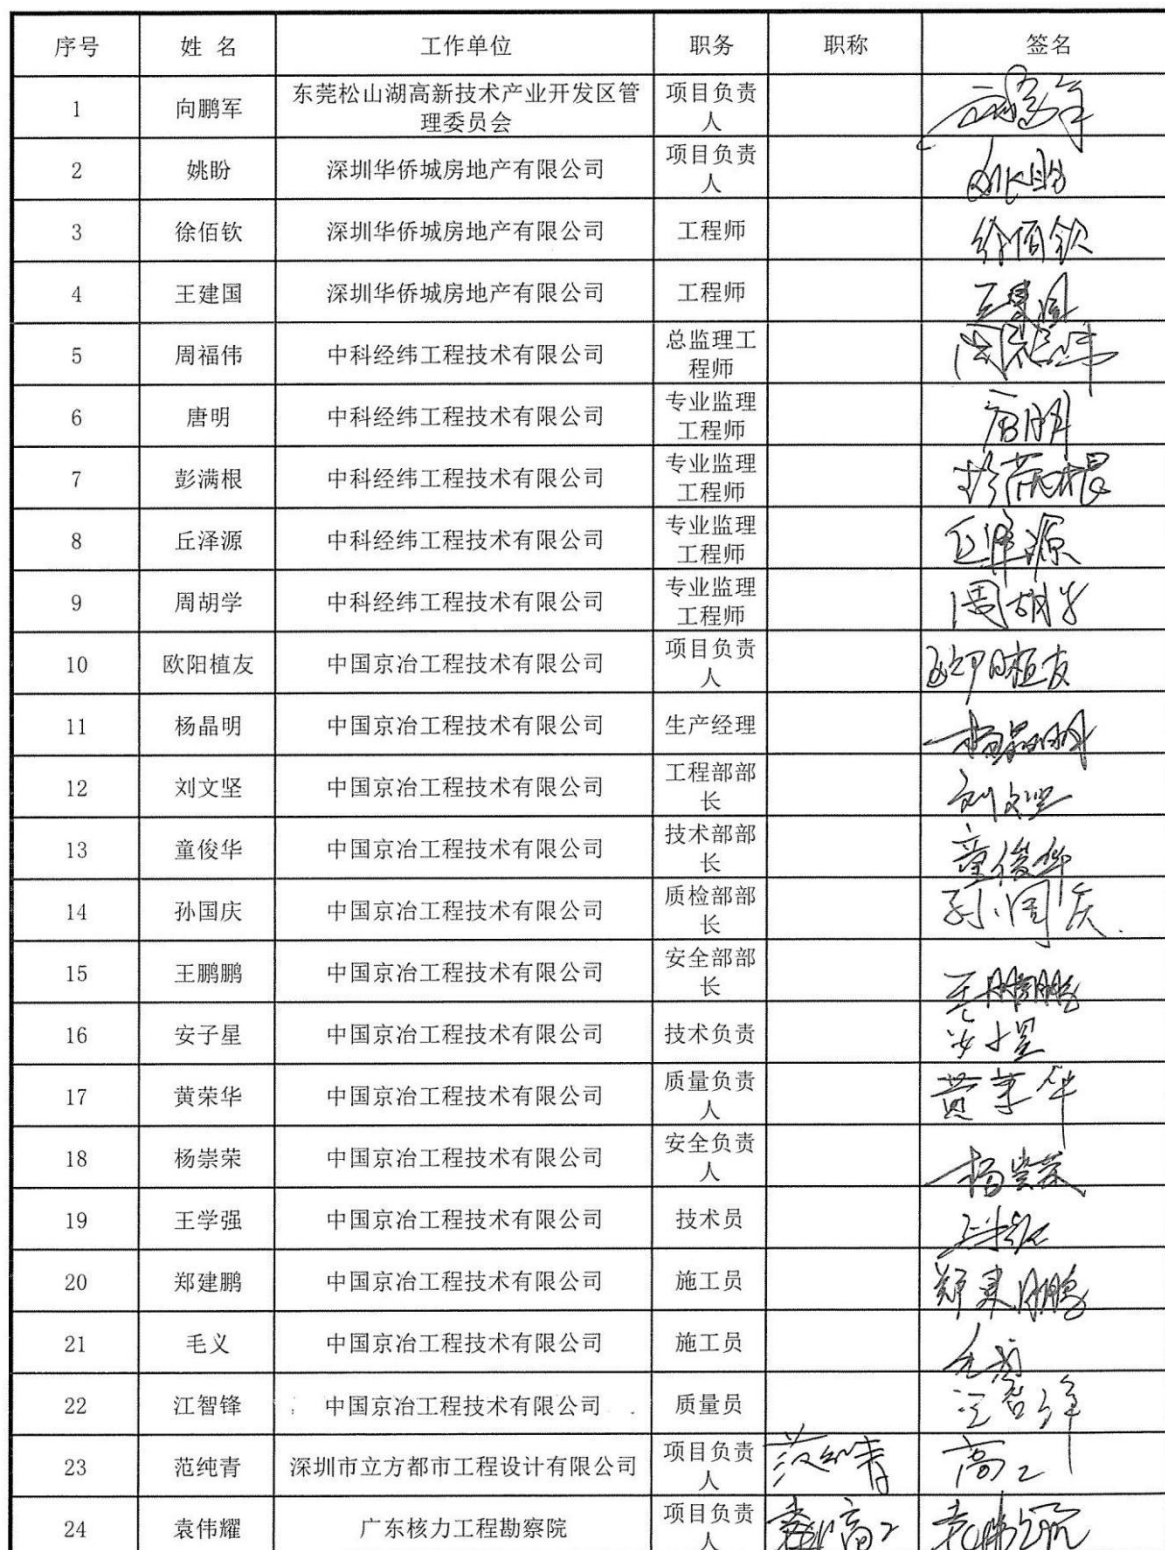 序号 姓 名 工作单位 职务 职称 签名
1 向鹏军 东莞松山湖高新技术产业开发区管理委员会 项目负责人 向鹏军
2 姚盼 深圳华侨城房地产有限公司 项目负责人
3 徐佰钦 深圳华侨城房地产有限公司 工程师 徐佰钦
4 王建国 深圳华侨城房地产有限公司 工程师 王建国
5 周福伟 中科经纬工程技术有限公司 总监理工程师 周福伟
6 唐明 中科经纬工程技术有限公司 专业监理工程师 唐明
7 彭满根 中科经纬工程技术有限公司 专业监理工程师 彭满根
8 丘泽源 中科经纬工程技术有限公司 专业监理工程师 丘泽源
9 周胡学 中科经纬工程技术有限公司 专业监理工程师 周胡学
10 欧阳植友 中国京冶工程技术有限公司 项目负责人 欧阳植友
11 杨晶明 中国京冶工程技术有限公司 生产经理 杨晶明
12 刘文坚 中国京冶工程技术有限公司 工程部部长 刘文坚
13 童俊华 中国京冶工程技术有限公司 技术部部长 童俊华
14 孙国庆 中国京冶工程技术有限公司 质检部部长 孙国庆
15 王鹏鹏 中国京冶工程技术有限公司 安全部部长 王鹏鹏
16 安子星 中国京冶工程技术有限公司 技术负责 安子星
17 黄荣华 中国京冶工程技术有限公司 质量负责人 黄荣华
18 杨崇荣 中国京冶工程技术有限公司 安全负责人 杨崇荣
19 王学强 中国京冶工程技术有限公司 技术员 王学强
20 郑建鹏 中国京冶工程技术有限公司 施工员 郑建鹏
21 毛义 中国京冶工程技术有限公司 施工员
22 江智锋 中国京冶工程技术有限公司 质量员 江智锋
23 范纯青 深圳市立方都市工程设计有限公司 项目负责人 范纯青 高工
24 袁伟耀 广东核力工程勘察院 项目负责人 高工 袁伟耀